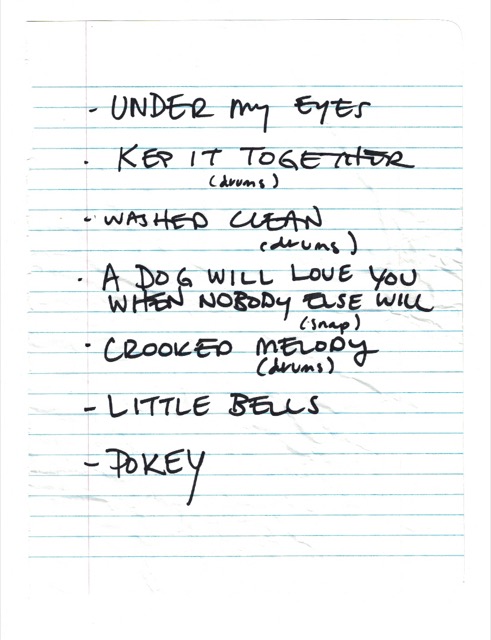 - UNDER my EYES
· KEP IT TOGETHER
(drums)
- WASHED CLEAN
(drums)
· A DOG WILL LOVE YOU
WHEN NOBODY ELSE WILL
(snap)
· CROOKED MELODY
(drums)
- LITTLE BELLS
- POKEY